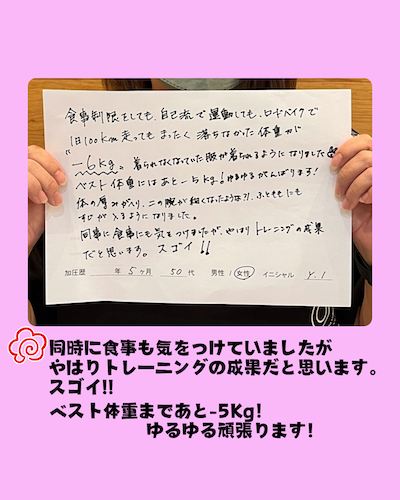 食事制限をしても、自己流で運動しても、ロードバイクで
1日100km走ってもまったく落ちなかった体重が
-6kg。着られなくなっていた服が着られるようになりました
ベスト体重にはあと-5kg!ゆるゆるがんばります!
体の厚みが入り、二の腕が細くなったような?!、ふとももにも
すじが入るようになりました。
同時に食事にも気をつけましたが、やはりトレーニングの成果
だと思います。スゴイ!!
加圧歴 年 5ヶ月 50代 男性 / 女性 イニシャル Y.I
同時に食事も気をつけていましたが
やはりトレーニングの成果だと思います。
スゴイ!!
ベスト体重まであと-5Kg!
ゆるゆる頑張ります!